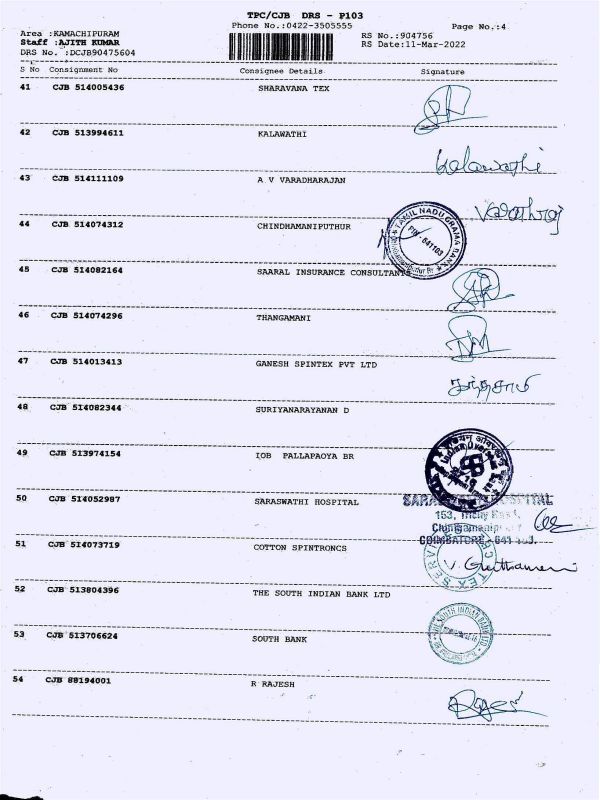 TPC/CJB DRS - P103
Phone No.:0422-3505555
Page No.:4
Area :KAMACHIPURAM
Staff :AJITH KUMAR
DRS No. :DCJB90475604
RS No.:904756
RS Date:11-Mar-2022
S No Consignment No Consignee Details Signature
41 CJB 514005436 SHARAVANA TEX
42 CJB 513994611 KALAWATHI
Kalawathi
43 CJB 514111109 A V VARADHARAJAN
44 CJB 514074312 CHINDHAMANIPUTHUR
TAMIL NADU GRAMA BANK
PIN - 641103
45 CJB 514082164 SAARAL INSURANCE CONSULTANTS
46 CJB 514074296 THANGAMANI
47 CJB 514013413 GANESH SPINTEX PVT LTD
48 CJB 514082344 SURIYANARAYANAN D
49 CJB 513974154 IOB PALLAPAOYA BR
50 CJB 514052987 SARASWATHI HOSPITAL
HOSPITAL
153, Trichy
COIMBATORE - 641
51 CJB 514073719 COTTON SPINTRONCS
52 CJB 513804396 THE SOUTH INDIAN BANK LTD
53 CJB 513706624 SOUTH BANK
SOUTH INDIAN BANK LTD
54 CJB 88194001 R RAJESH